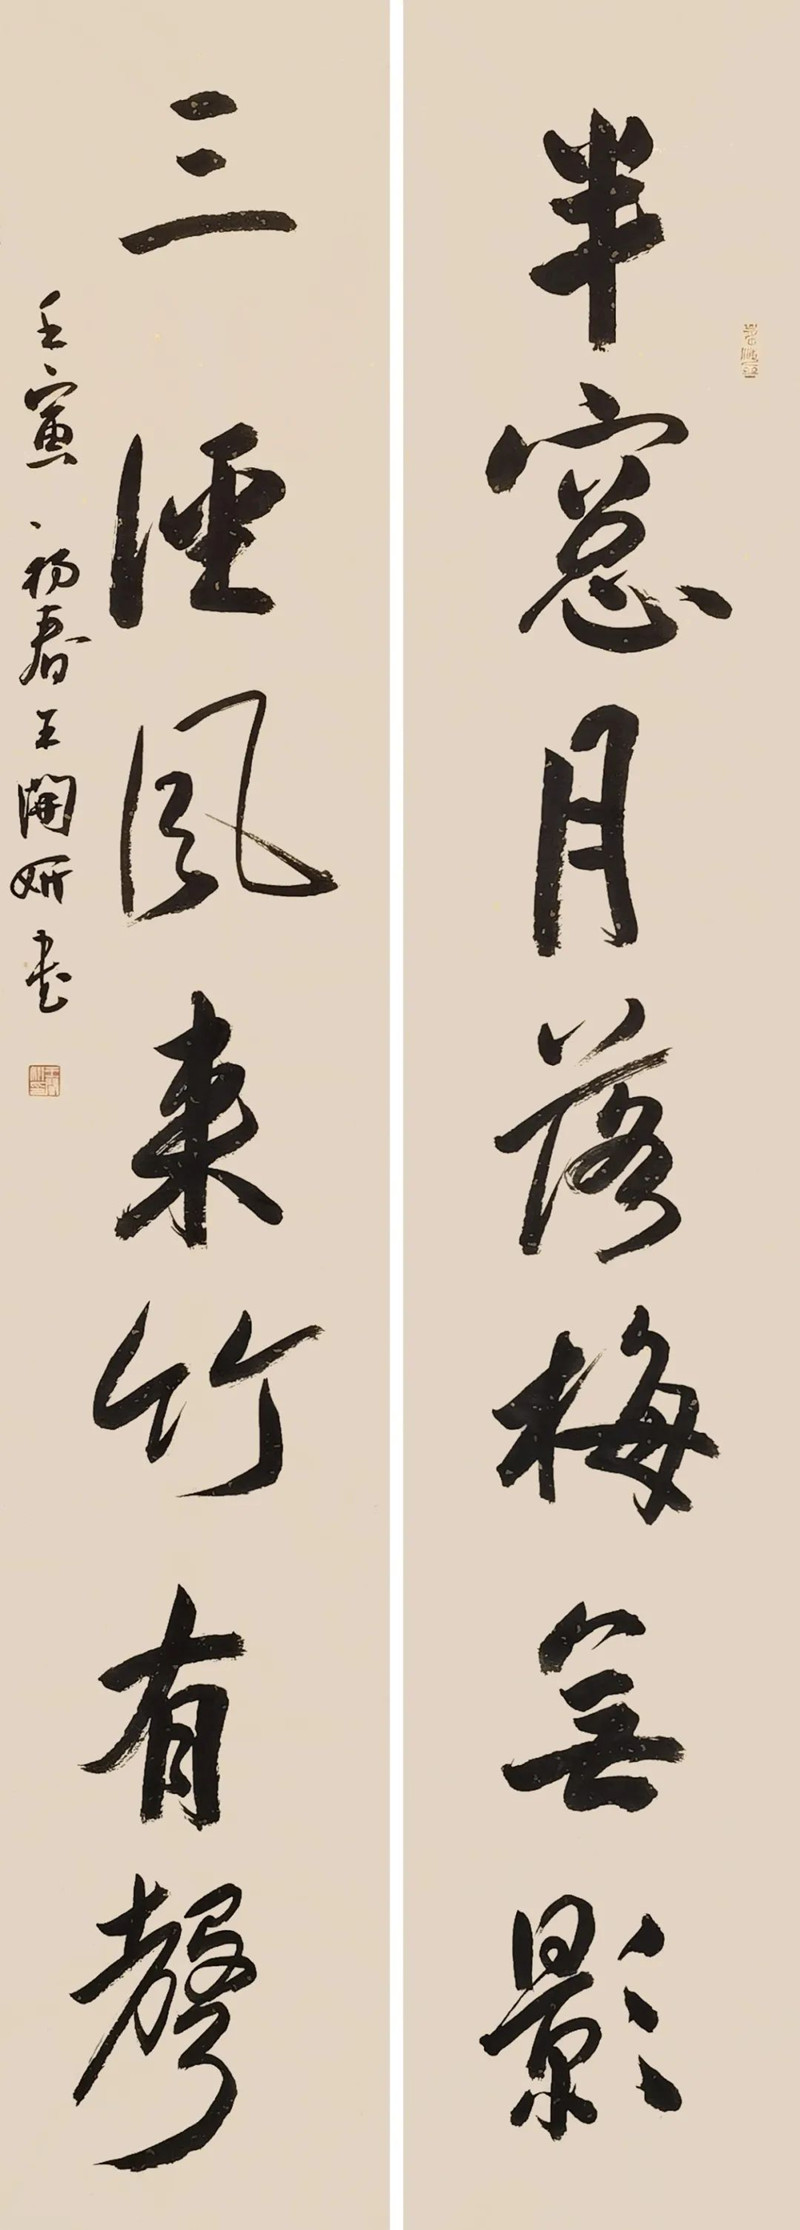 半窓月落梅無影
三徑風来竹有聲
壬寅初春王開妍書